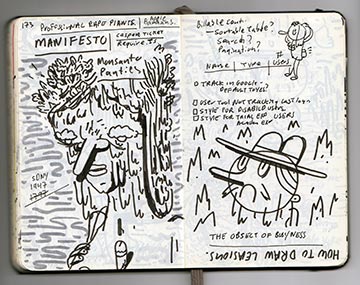 173 PROFESSIONAL RAPO PLANTS
MANIFESTO
Require
Monsanto
Panties
SONY
1947
Billable Count:
— Sortable Table?
— Search?
— Pagination?
NAME | TYPE | USERS
TRACK IN GOOGLE - ?
DEFAULT TYPE?
USER TOOL NOT TRACKING
STYLE FOR DISABLED USER
STYLE FOR TRIAL EXP USERS
THE OBJECT OF BUSYNESS
HOW TO DRAW LEASIONS.